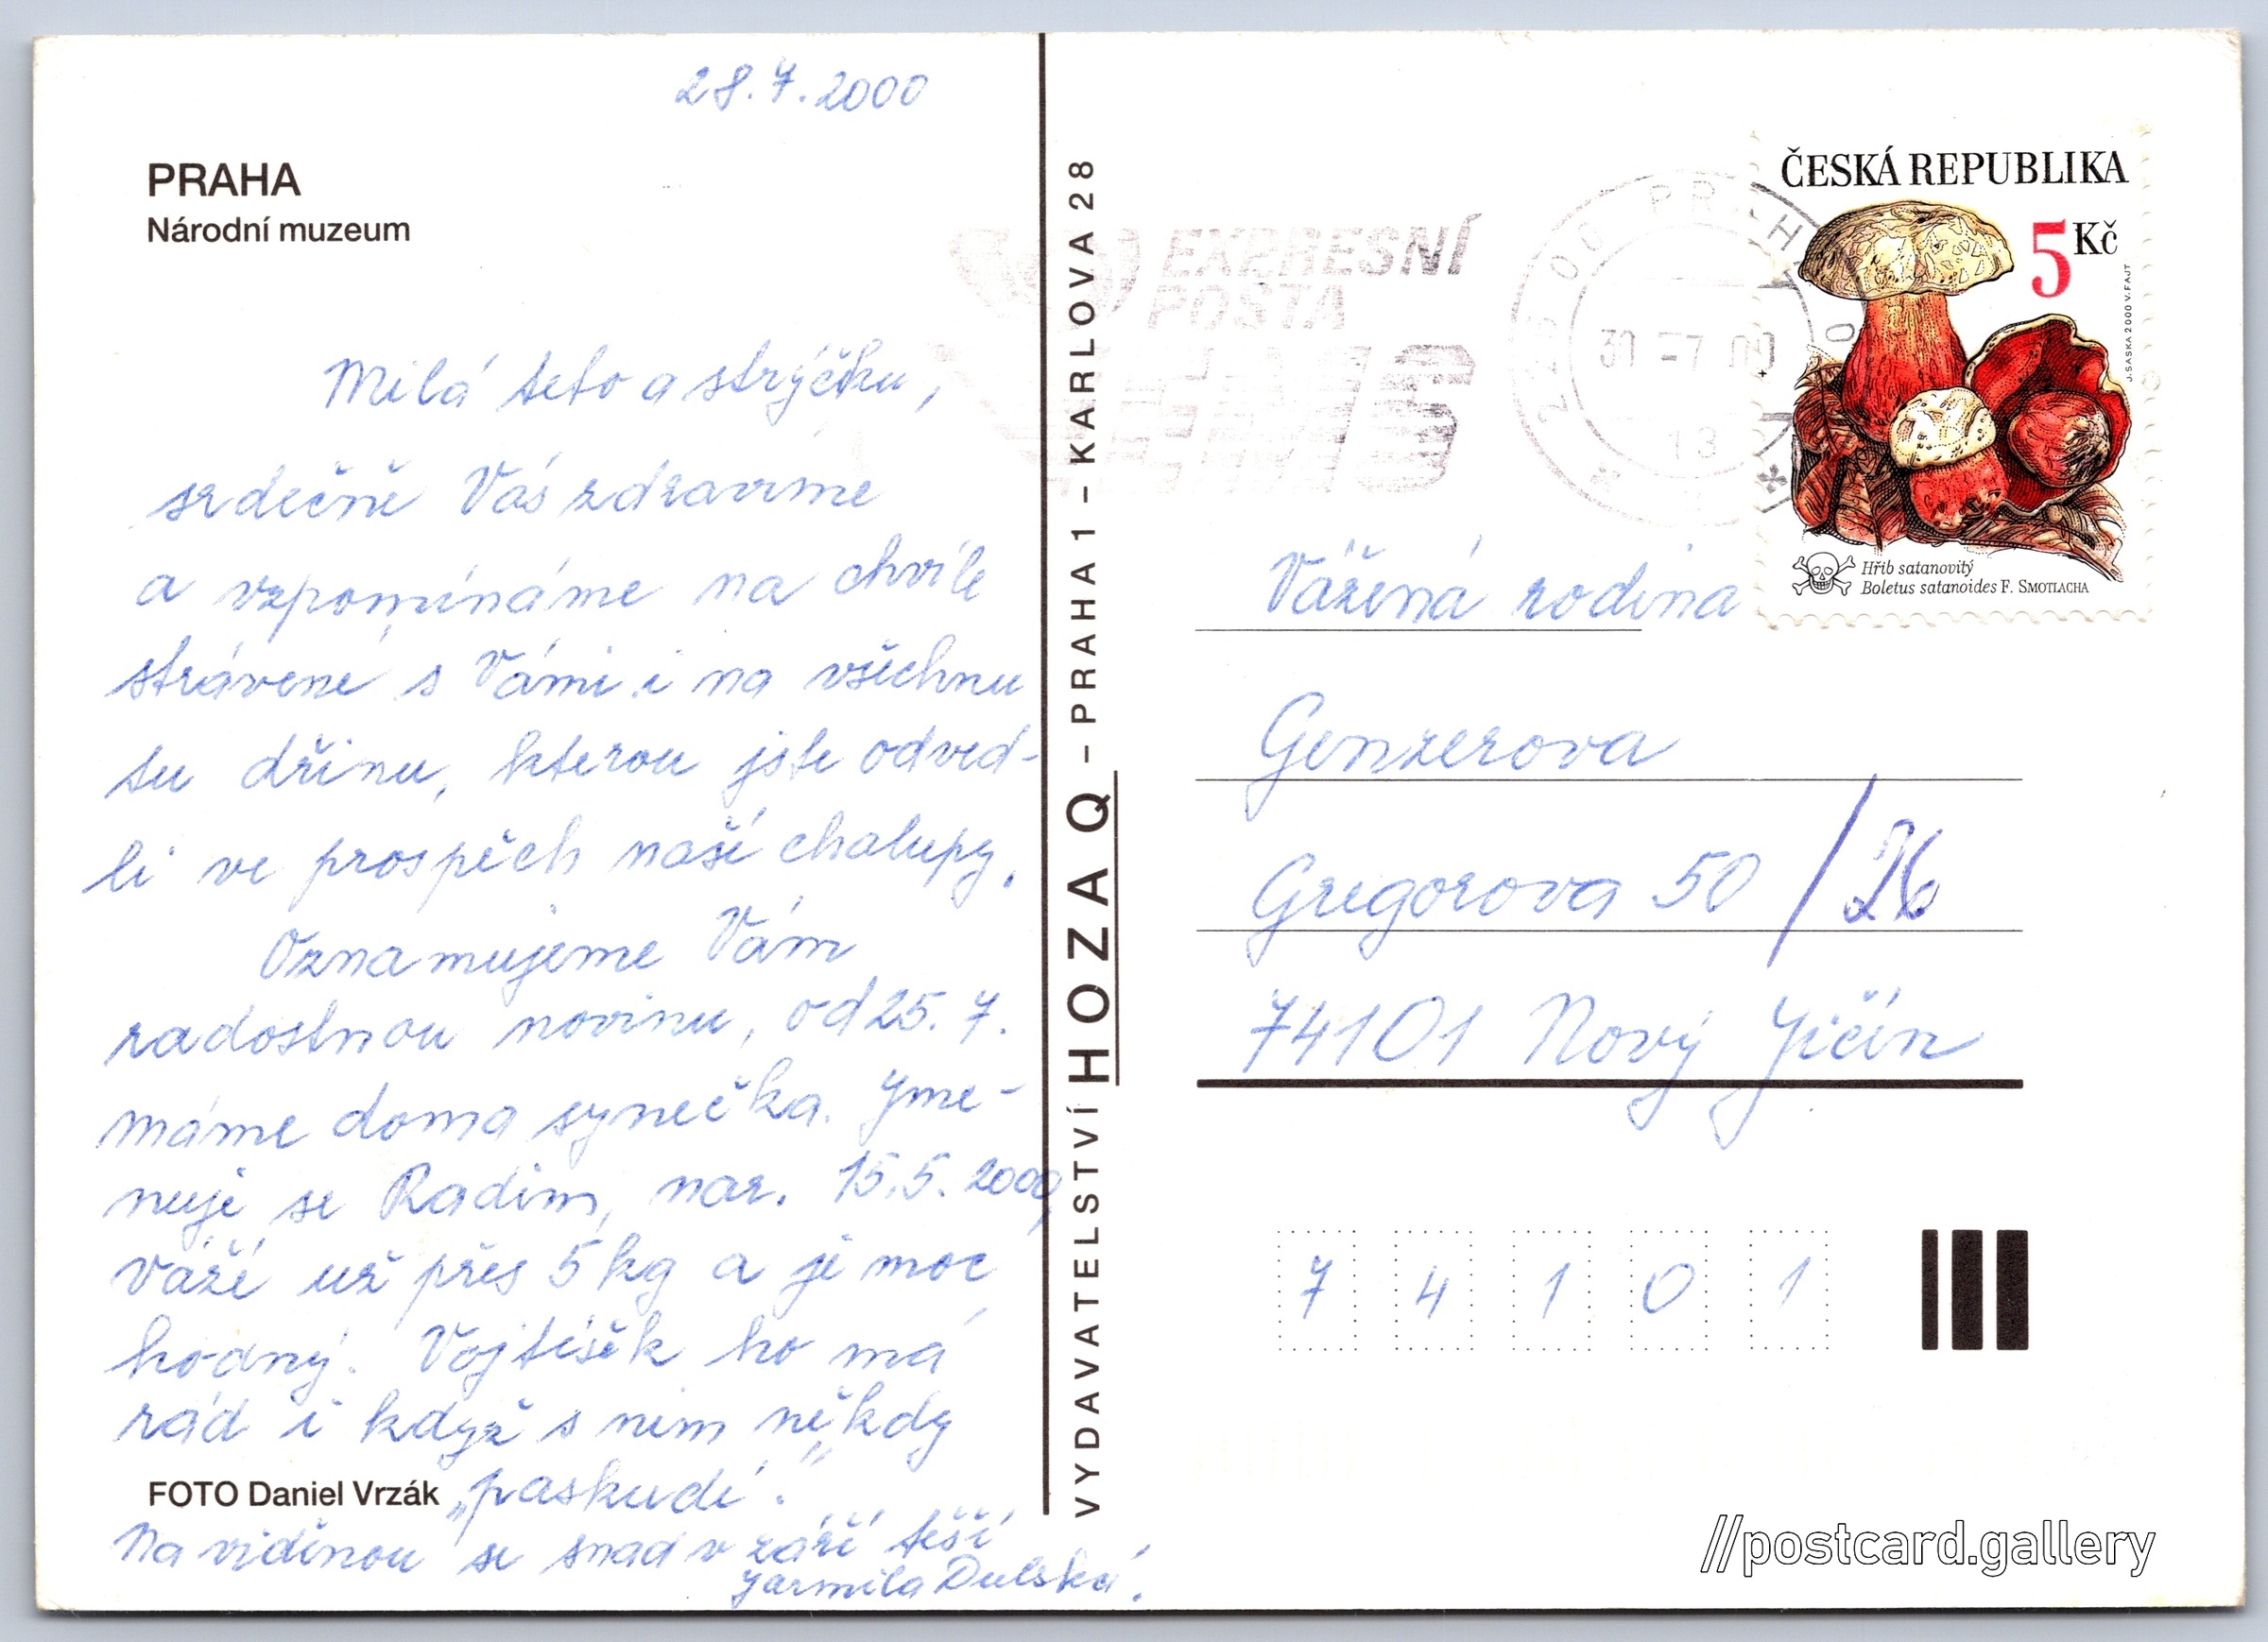 28.7.2000
PRAHA
Národní muzeum
Milá teto a strýčku,
srdečně Vás zdravíme
a vzpomínáme na chvíle
strávené s Vámi i na všechnu
tu dřinu, kterou jste odved-
li ve prospěch naší chalupy.
Oznamujeme Vám
radostnou novinu, od 25. 7.
máme doma synečka. Jme-
nuje se Radim, nar. 15.5. 2000,
váží už přes 5 kg a je moc
hodný. Vojtíšek ho má
rád i když s ním někdy
„paskudí".
FOTO Daniel Vrzák
Na viděnou se snad v září těší
Jarmila Dulská.
VYDAVATELSTVÍ HOZA Q – PRAHA 1 – KARLOVA 28
EXPRESNÍ
POŠTA
EMS
PRAHA
31 -7 00
13
ČESKÁ REPUBLIKA
5 Kč
J. SASKA 2000 V. FAJT
Hřib satanovitý
Boletus satanoides F. SMOTLACHA
Vážená rodina
Genzerova
Gregorova 50 / 26
74101 Nový Jičín
7 4 1 0 1
//postcard.gallery